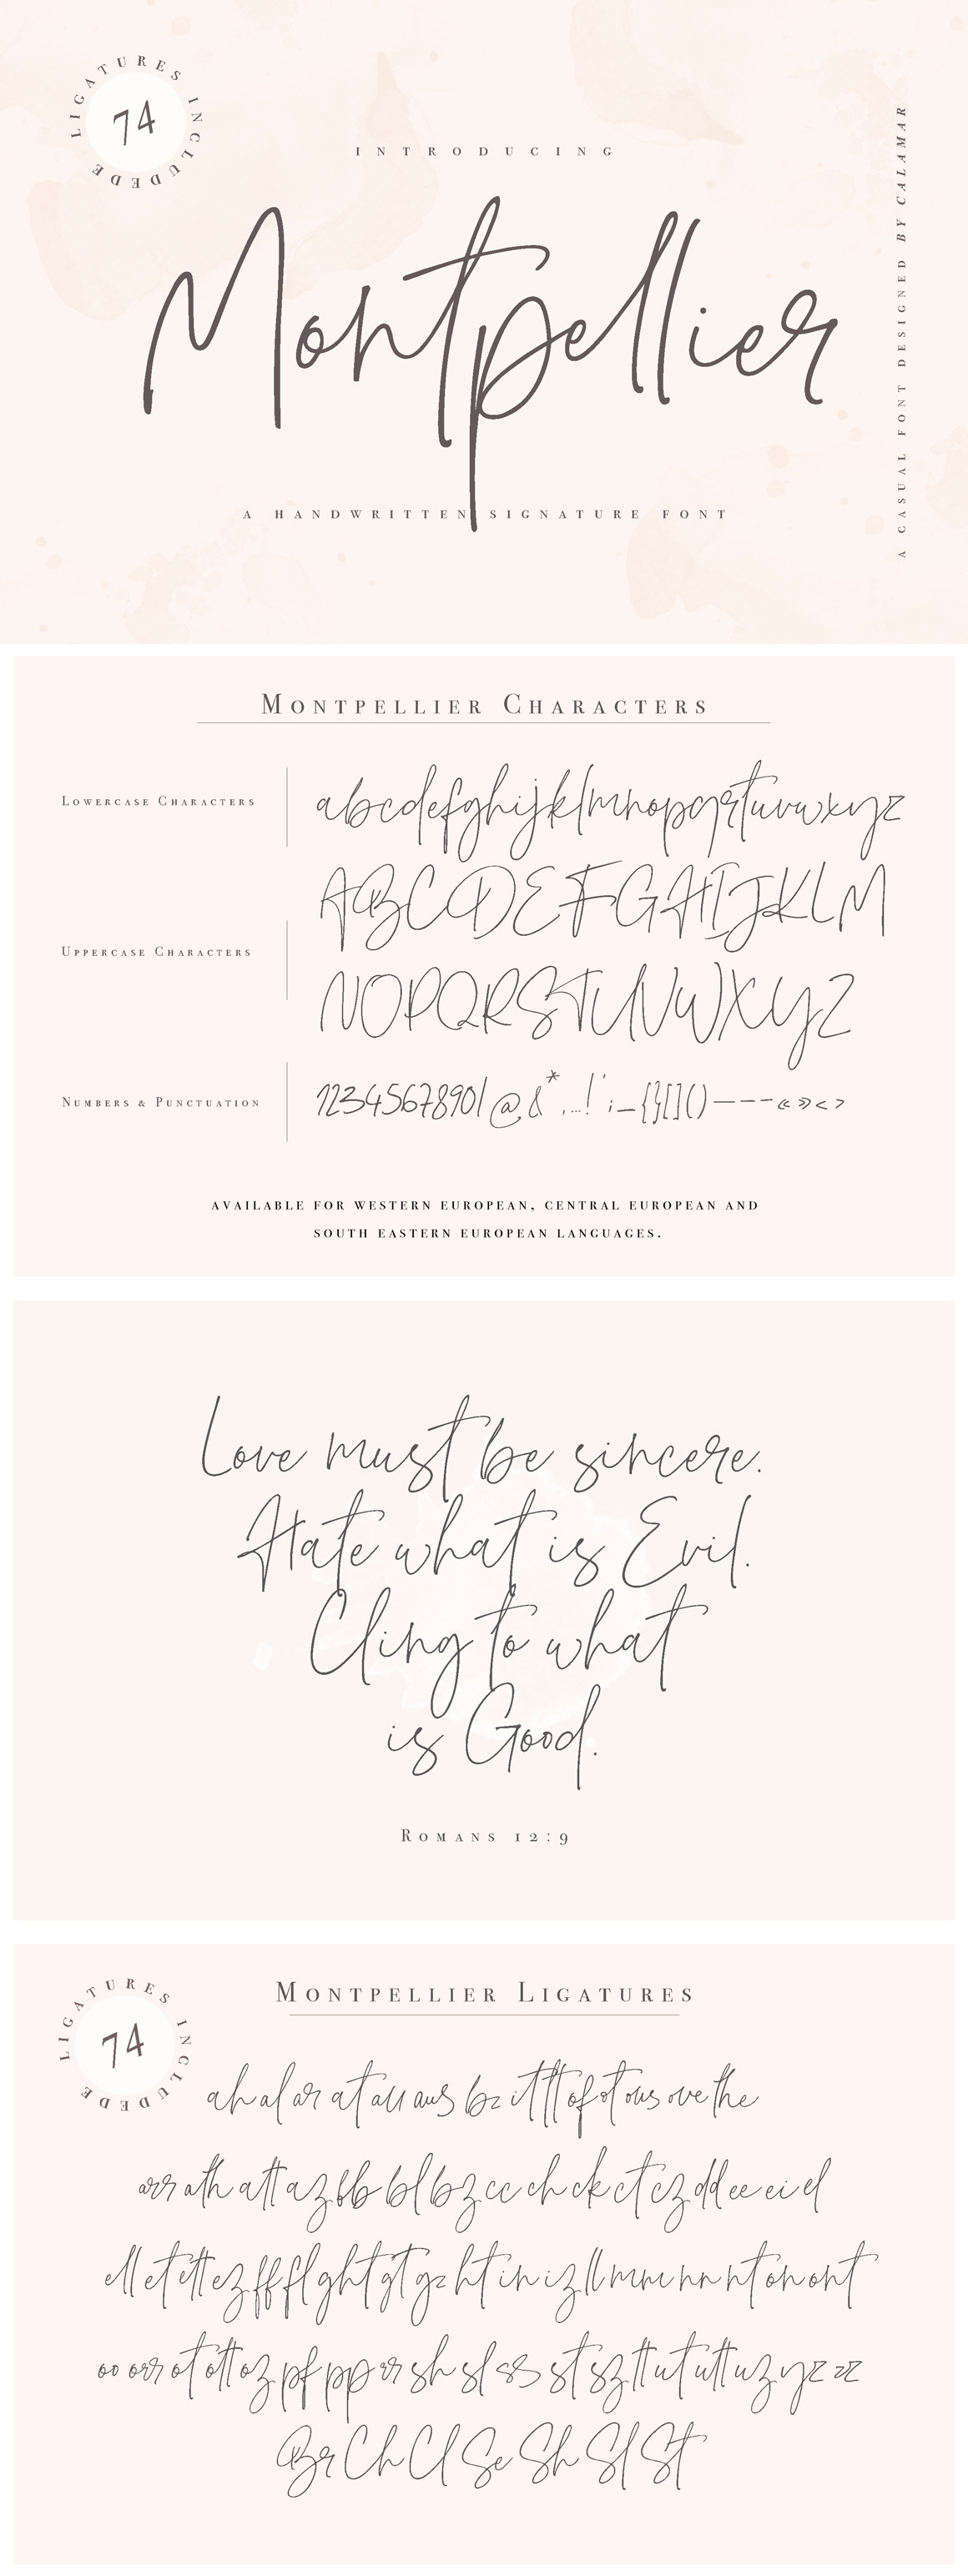 LIGATURES INCLUDEDE
74
INTRODUCING
Montpellier
A HANDWRITTEN SIGNATURE FONT
A CASUAL FONT DESIGNED BY CALAMAR
Montpellier Characters
Lowercase Characters
abcdefghijklmnopqrstuvwxyz
Uppercase Characters
ABCDEFGHIJKLM
NOPQRSTUVWXYZ
Numbers & Punctuation
1234567890/@&*,...!';_{}[]()—–-«»<>
AVAILABLE FOR WESTERN EUROPEAN, CENTRAL EUROPEAN AND
SOUTH EASTERN EUROPEAN LANGUAGES.
Love must be sincere.
Hate what is Evil.
Cling to what
is Good.
Romans 12:9
LIGATURES INCLUDEDE
74
Montpellier Ligatures
ah al ar at au aus bz it tt of ot ous ove the
arr ath att az bb bl bz cc ch ck ct cz dd ee ei el
ell et ett ez ff fl ght gt gz ht in iz ll mm nn nt on ont
oo orr ot ott oz pf pp rr sh sl ss st sz tt ut utt uz yz zz
Br Ch Cl Se Sh Sl St